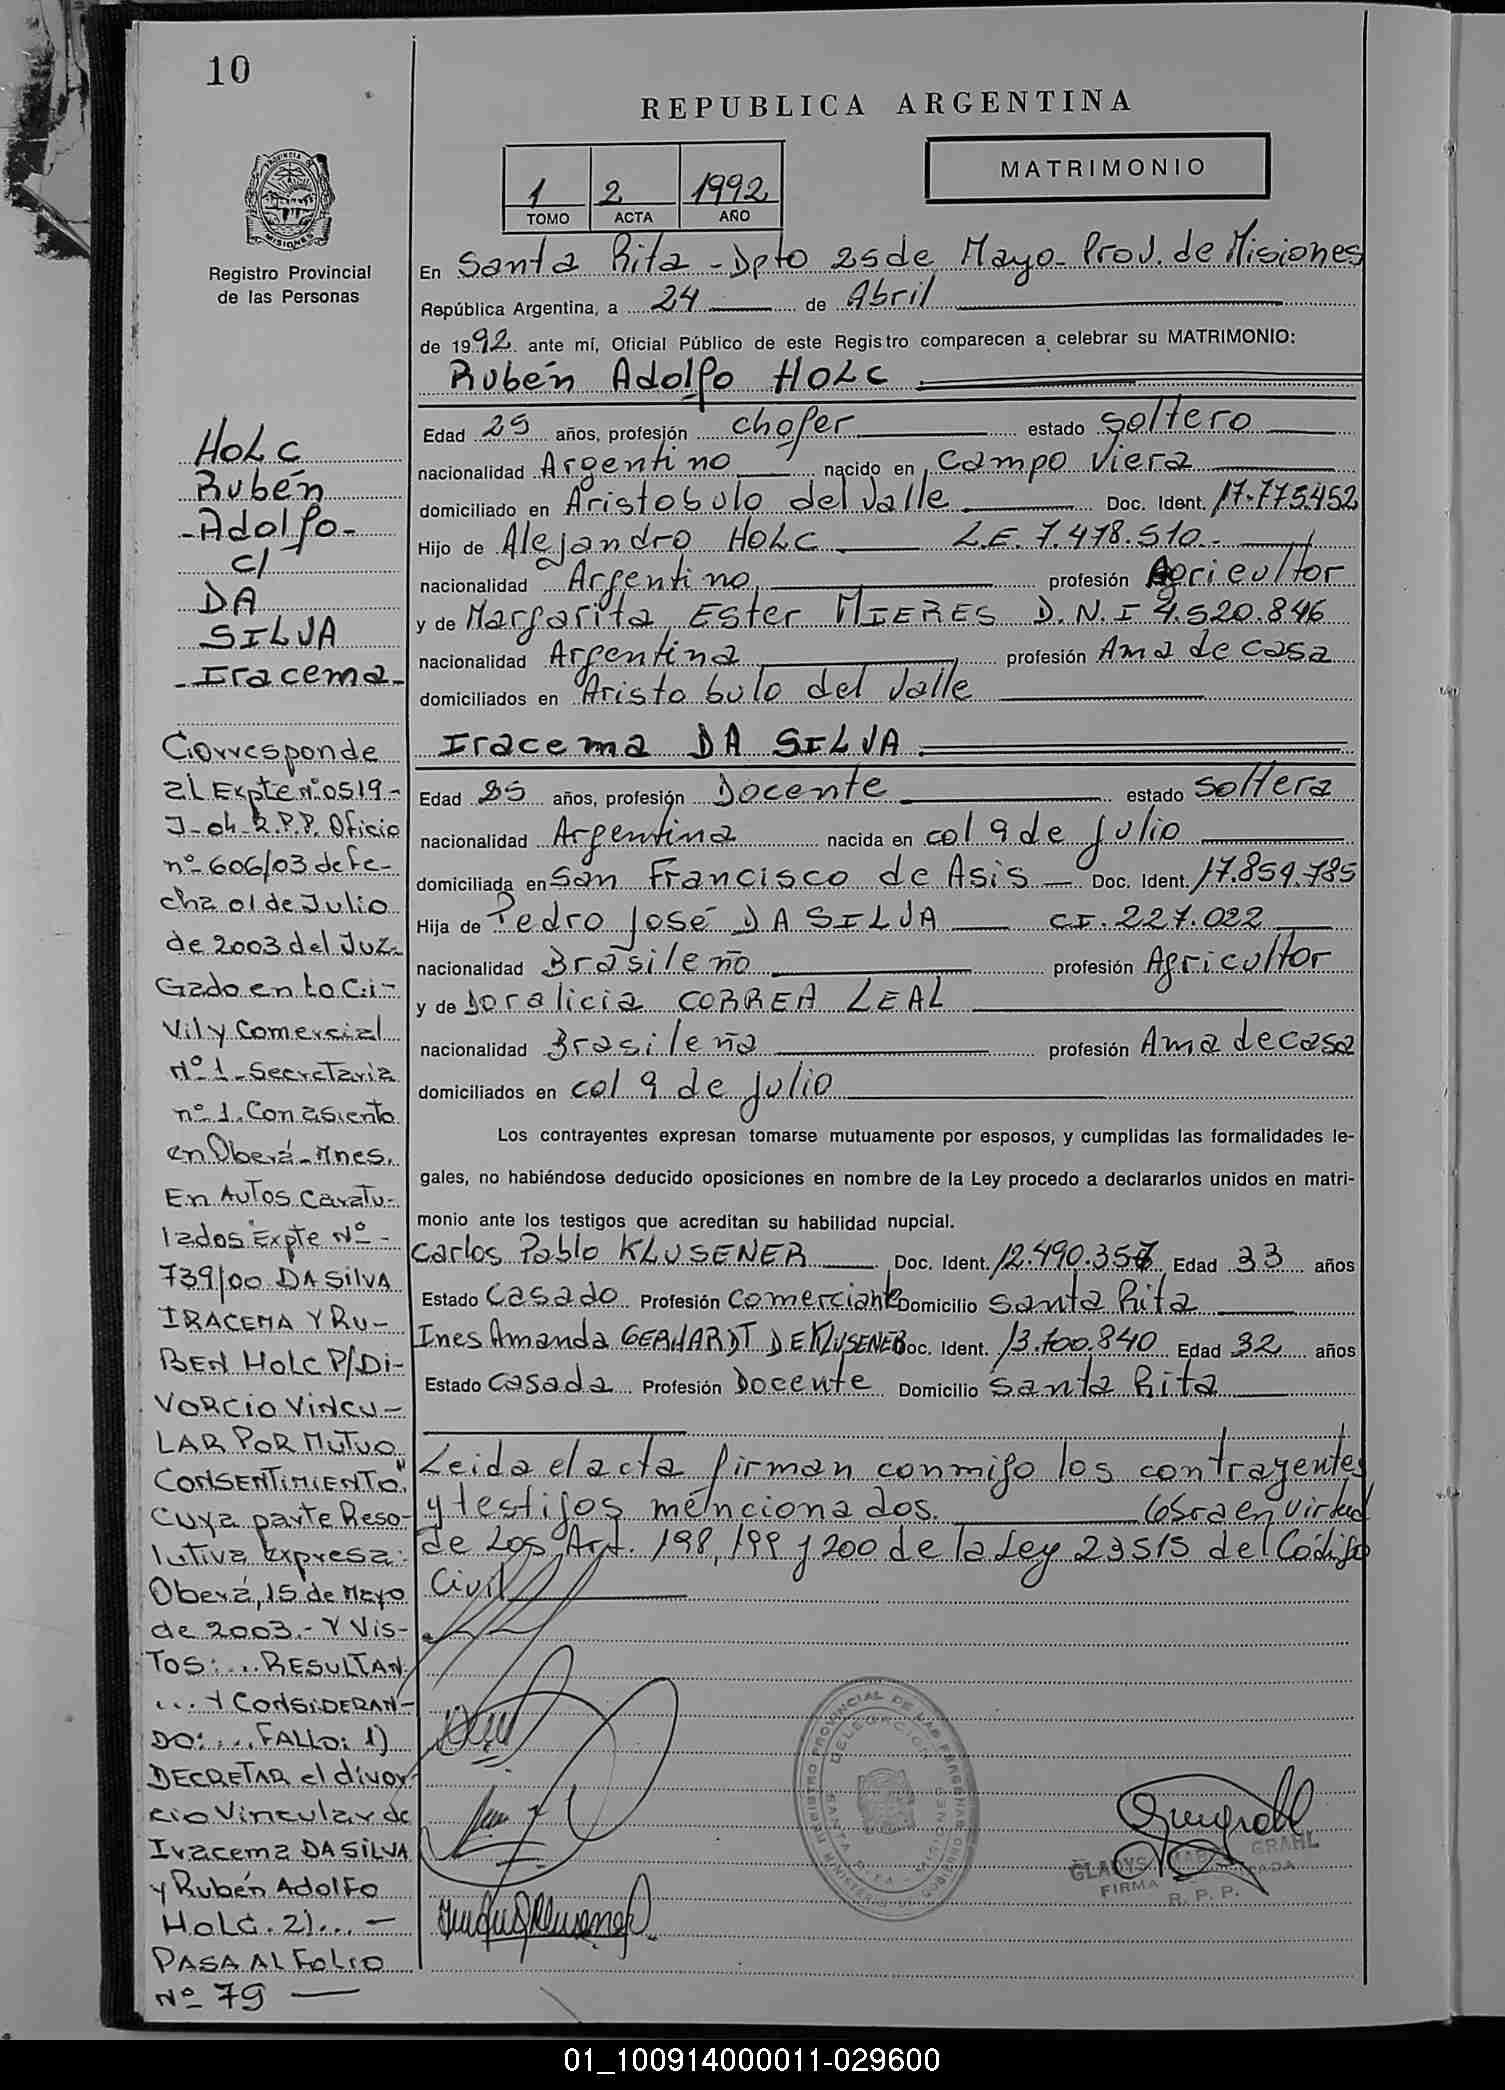 10
REPUBLICA ARGENTINA
MATRIMONIO
1 2 1992
TOMO ACTA AÑO
PROVINCIA DE MISIONES
Registro Provincial
de las Personas
En Santa Rita - Dpto 25 de Mayo - Prov. de Misiones
República Argentina, a 24 de Abril
de 1992 ante mí, Oficial Público de este Registro comparecen a celebrar su MATRIMONIO:
Rubén Adolfo HOLC
Edad 25 años, profesión chofer estado soltero
nacionalidad Argentino nacido en Campo Viera
domiciliado en Aristobulo del Valle Doc. Ident. 17.775.452
Hijo de Alejandro HOLC L.E. 7.478.510.-
nacionalidad Argentino profesión Agricultor
y de Margarita Ester MIERES D.N.I 4.520.846
nacionalidad Argentina profesión Ama de casa
domiciliados en Aristobulo del Valle
Iracema DA SILVA
Edad 25 años, profesión Docente estado soltera
nacionalidad Argentina nacida en col 9 de julio
domiciliada en San Francisco de Asis Doc. Ident. 17.859.785
Hija de Pedro José DA SILVA CI. 227.022
nacionalidad Brasileño profesión Agricultor
y de Doralicia CORREA LEAL
nacionalidad Brasileña profesión Ama de casa
domiciliados en col 9 de julio
Los contrayentes expresan tomarse mutuamente por esposos, y cumplidas las formalidades le-
gales, no habiéndose deducido oposiciones en nombre de la Ley procedo a declararlos unidos en matri-
monio ante los testigos que acreditan su habilidad nupcial.
Carlos Pablo KLUSENER Doc. Ident. 12.490.357 Edad 33 años
Estado Casado Profesión comerciante Domicilio Santa Rita
Ines Amanda GERHARDT DE KLUSENER Doc. Ident. 13.700.840 Edad 32 años
Estado Casada Profesión Docente Domicilio Santa Rita
Leida el acta firman conmigo los contrayentes
y testigos mencionados. en virtud
de Los Art. 198, 199 y 200 de la Ley 23515 del Código
Civil
HOLC
Rubén
-Adolfo-
c/
DA
SILVA
-Iracema-
Corresponde
al Expte nº 0519-
J-04-R.P.P. Oficio
nº 606/03 de fe-
cha 01 de Julio
de 2003 del Juz-
Gado en Lo Ci-
Vil y Comercial
Nº 1 - Secretaria
nº 1. Con asiento
en Oberá - Mnes.
En Autos Caratu-
lados "Expte Nº -
739/00 DA SILVA
IRACEMA Y RU-
BEN HOLC P/ DI-
VORCIO VINCU-
LAR POR MUTUO
CONSENTIMIENTO"
Cuya parte Reso-
lutiva Expresa:
Oberá, 15 de Mayo
de 2003.- Y VIS-
TOS: ... RESULTAN
... Y CONSIDERAN-
DO: ... FALLO: 1)
DECRETAR el divor-
cio Vincular de
Iracema DA SILVA
y Rubén Adolfo
HOLC. 2)... -
PASA AL FOLIO
Nº 79
REGISTRO PROVINCIAL DE LAS PERSONAS
DELEGACION
SANTA RITA - MISIONES
GLADYS MABEL GRAHL
FIRMA
R. P. P.
01_100914000011-029600